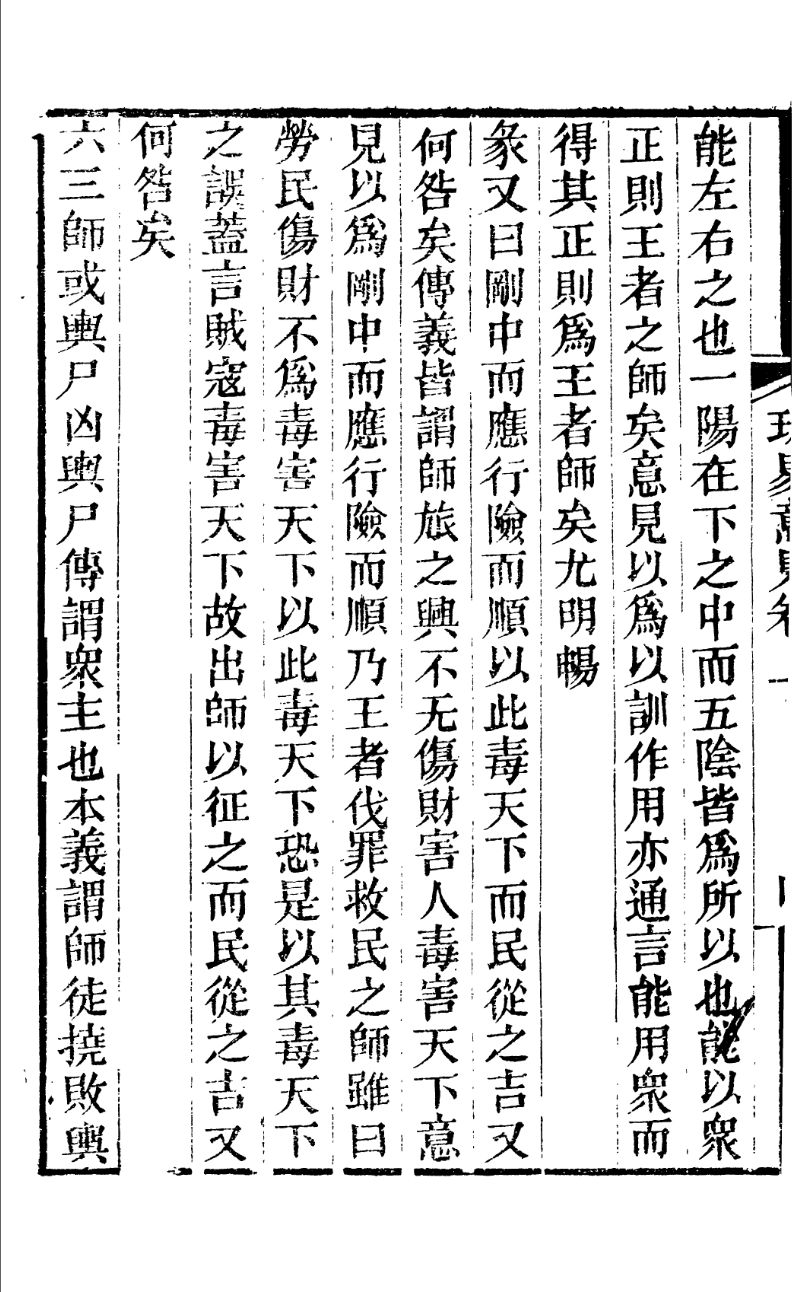 能左右之也一陽在下之中而五陰皆爲所以也能以衆
正則王者之師矣意見以爲以訓作用亦通言能用衆而
得其正則爲王者師矣尤明暢
彖又曰剛中而應行險而順以此毒天下而民從之吉又
何咎矣傳義皆謂師旅之興不无傷財害人毒害天下意
見以爲剛中而應行險而順乃王者伐罪救民之師雖曰
勞民傷財不爲毒害天下以此毒天下恐是以其毒天下
之誤蓋言賊寇毒害天下故出師以征之而民從之吉又
何咎矣
六三師或輿尸凶輿尸傳謂衆主也本義謂師徒撓敗輿